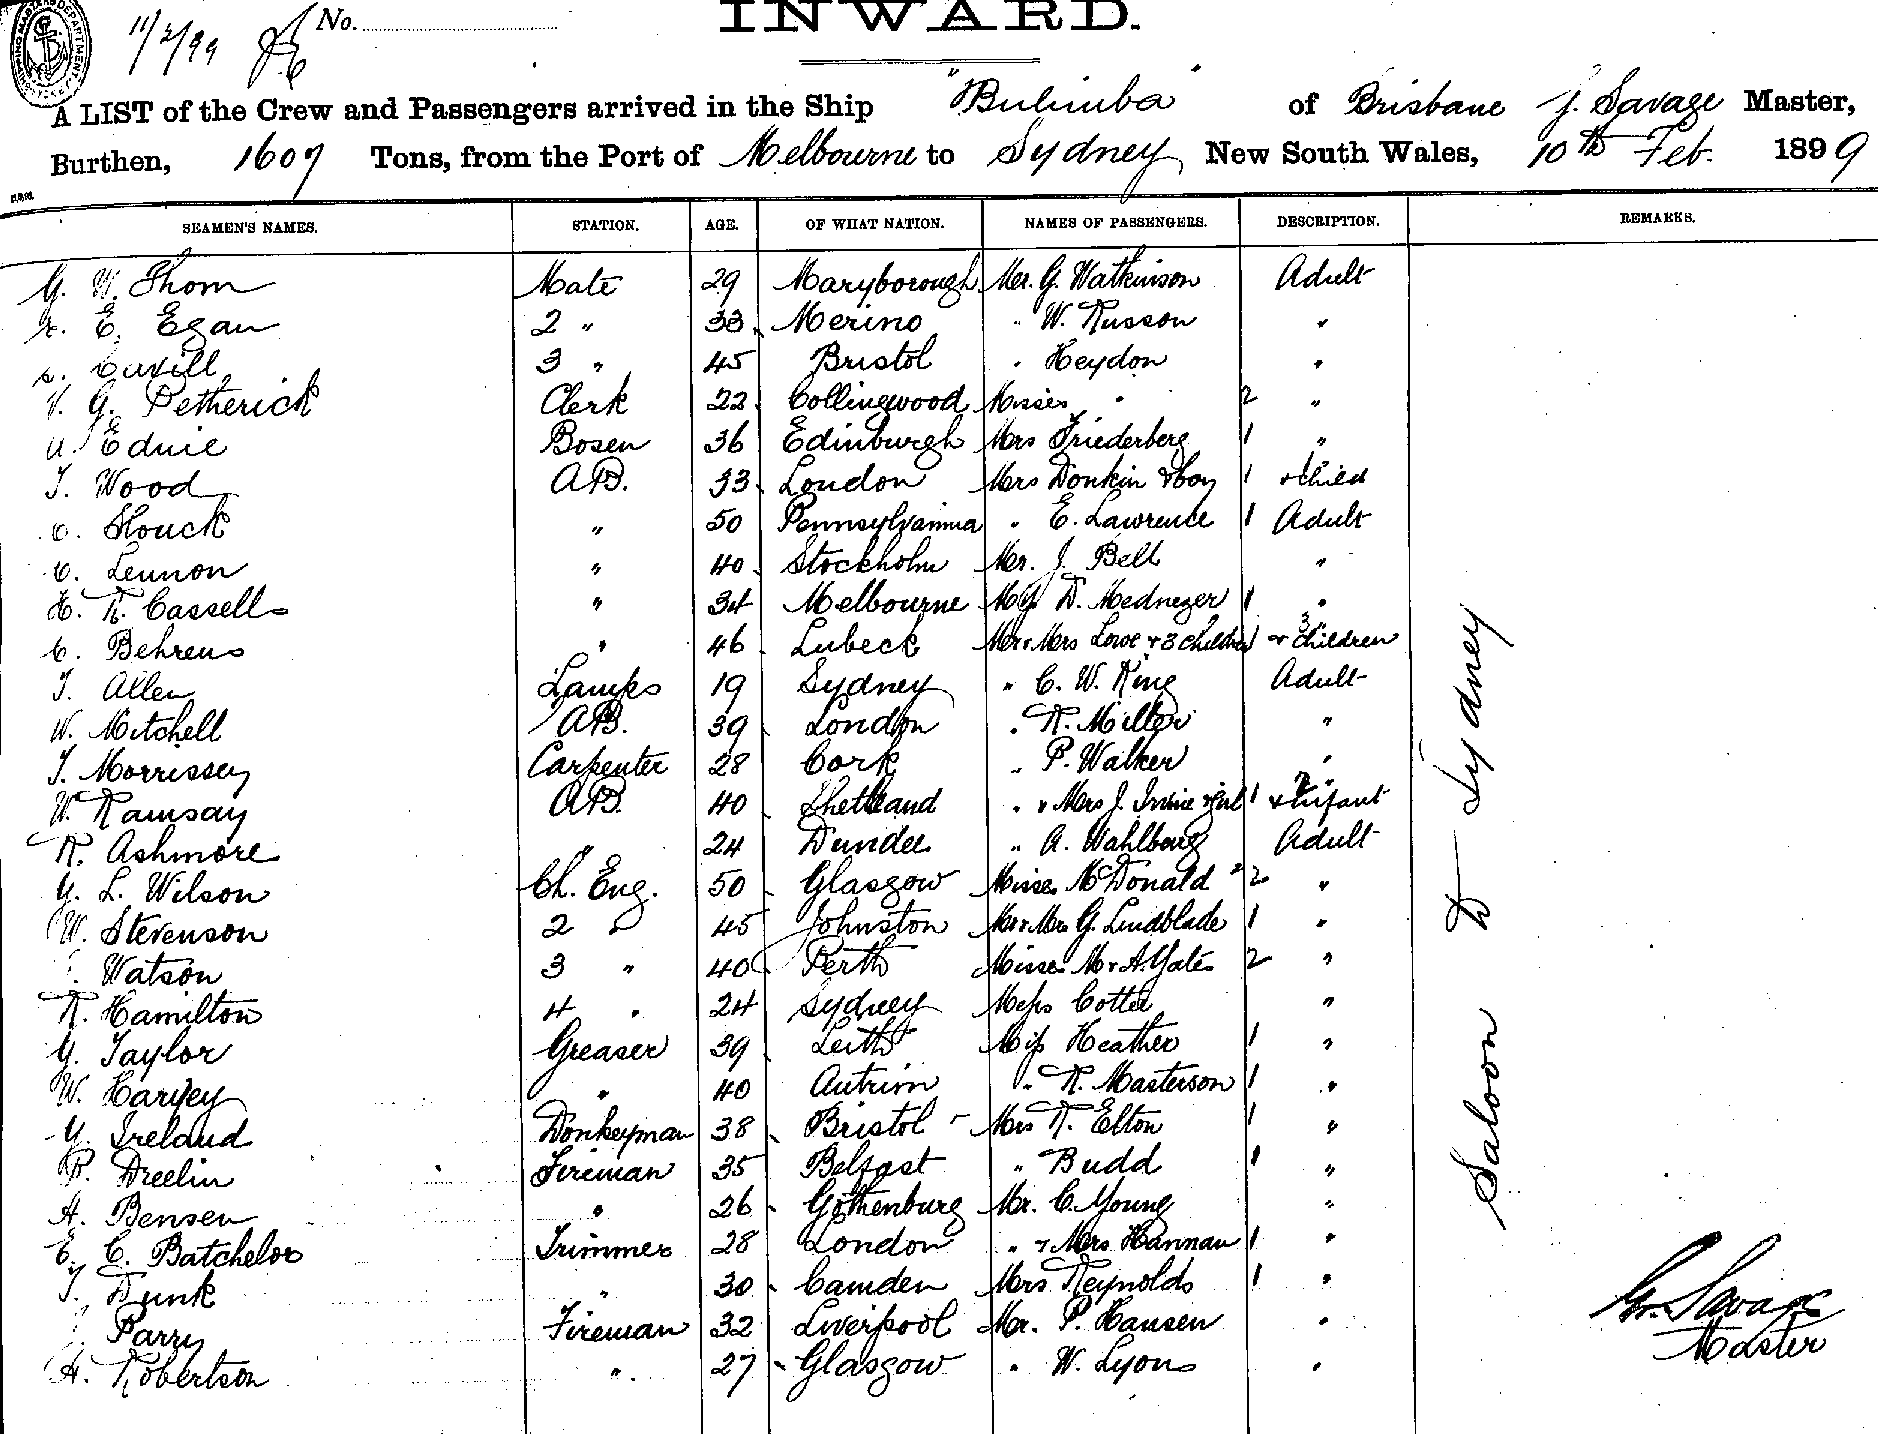 INWARD.
11/2/99 No.
A LIST of the Crew and Passengers arrived in the Ship "Bulimba" of Brisbane J. Savage Master,
Burthen, 1607 Tons, from the Port of Melbourne to Sydney New South Wales, 10th Feb. 1899
SEAMEN'S NAMES. STATION. AGE. OF WHAT NATION. NAMES OF PASSENGERS. DESCRIPTION. REMARKS.
G. W. Thom Mate 29 Maryborough Mr. G. Watkinson Adult
E. Egan 2 " 33 Merino " W. Russon "
Cavill 3 " 45 Bristol " Heydon "
G. Petherick Clerk 22 Collingwood Misses " 2 "
Ednie Bosen 36 Edinburgh Mrs Friederberg 1 "
T. Wood AB. 33 London Mrs Donkin & boy 1 & Child
Houck " 50 Pennsylvannia " E. Lawrence 1 Adult
C. Lennon " 40 Stockholm Mr. J. Bell "
H. R. Cassells " 34 Melbourne D. Mednezer 1 "
C. Behrens " 46 Lubeck Mr & Mrs Lowe & 3 children 1 & 3 children
T. Allen Lamps 19 Sydney " C. W. King Adult
W. Mitchell AB. 39 London " R. Miller "
T. Morrissey Carpenter 28 Cork " P. Walker "
W. Ramsay AB. 40 Shetland " & Mrs J. Irvine & Girl 1 & Infant
R. Ashmore " 24 Dundee " A. Wahlberg Adult
G. L. Wilson Ch. Eng. 50 Glasgow Misses McDonald 2 2 "
W. Stevenson 2 " 45 Johnston Mr & Mrs G. Lindblade 1 "
Watson 3 " 40 Perth Misses M & A. Yates 2 "
R. Hamilton 4 " 24 Sydney Messrs Cotter "
G. Taylor Greaser 39 Leith Miss Heather 1 "
W. Harvey " 40 Antrim " R. Masterson 1 "
G. Ireland Donkeyman 38 Bristol Mrs R. Elton 1 "
P. Dreelin Fireman 35 Belfast " Budd 1 "
A. Bensen " 26 Gothenburg Mr. C. Young "
E. C. Batchelor Trimmer 28 London " & Mrs Hannan 1 "
T. Dunk " 30 Camden Mrs Reynolds 1 "
Parry Fireman 32 Liverpool Mr. P. Hansen "
A. Robertson " 27 Glasgow " W. Lyons "
Saloon To Sydney
Savage
Master